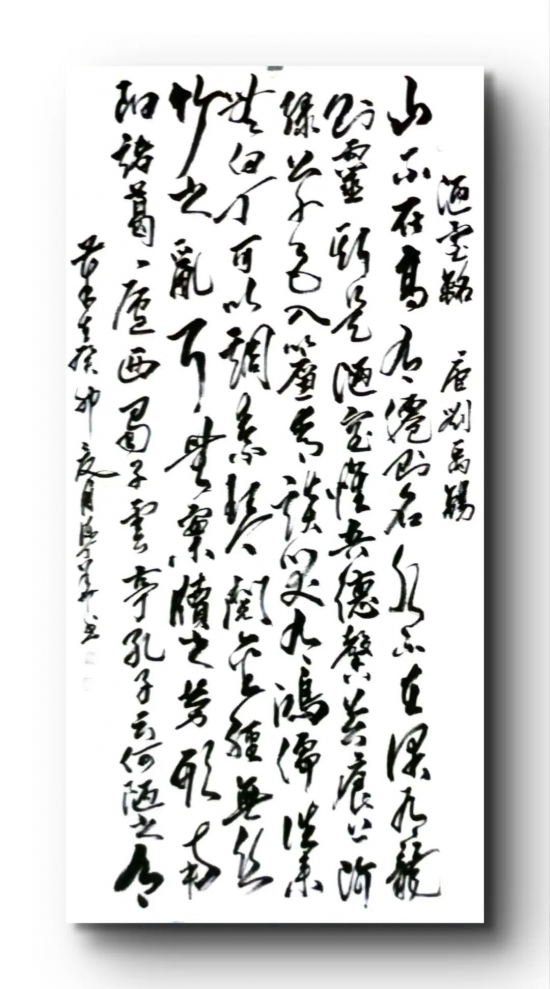 陋室銘 唐劉禹錫
山不在高有僊則名水不在深有龍
則靈斯是陋室惟吾德馨苔痕上階
綠草色入簾青談笑有鴻儒往來
無白丁可以調素琴閱金經無絲
竹之亂耳無案牘之勞形南
陽諸葛廬西蜀子雲亭孔子云何陋之有
癸卯夏月書